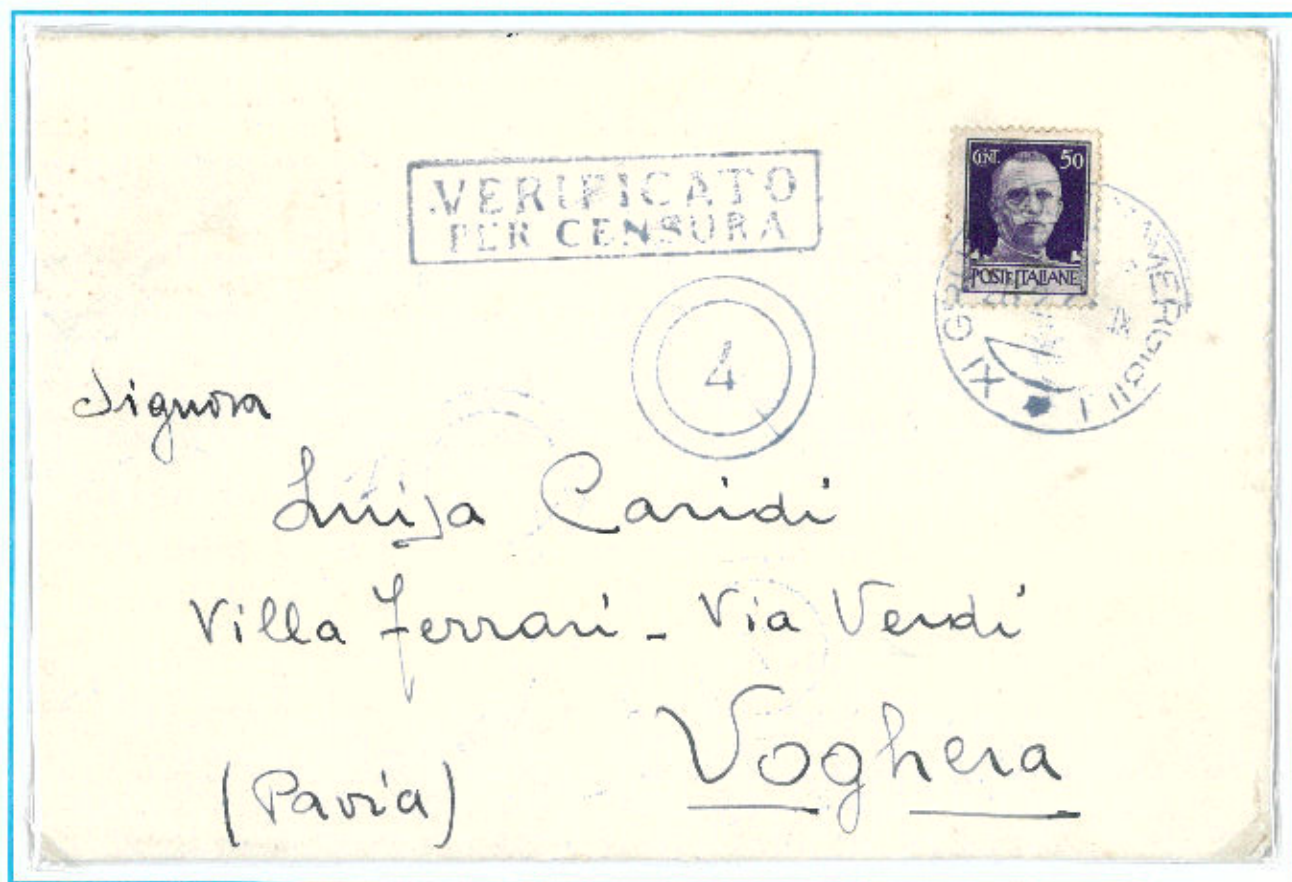 VERIFICATO
PER CENSURA
CENT. 50
POSTE ITALIANE
4
XI
Signora
Luisa Caridi
Villa Ferrari - Via Verdi
Voghera
(Pavia)